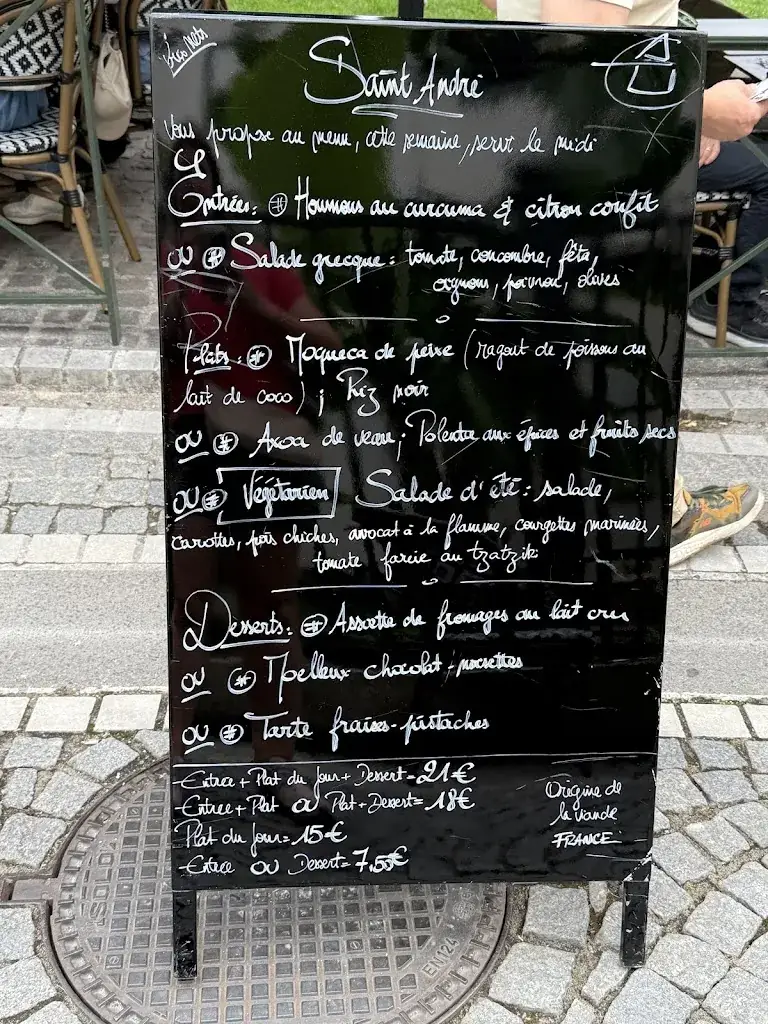 Prix Nets
Saint André
Vous propose au menu, cette semaine, servi le midi
Entrées: Houmous au curcuma & citron confit
ou Salade grecque: tomate, concombre, fêta,
oignons, poivron, olives
Plats: Moqueca de peixe (ragout de poissons au
lait de coco); Riz noir
ou Axoa de veau; Polenta aux épices et fruits secs
ou Végétarien Salade d'été: salade,
carottes, pois chiches, avocat à la flamme, courgettes marinées,
tomate farcie au tzatziki
Desserts: Assiette de fromages au lait cru
ou Moelleux chocolat-noisettes
ou Tarte fraises-pistaches
Entrée + Plat du Jour + Dessert = 21€
Entrée + Plat ou Plat + Dessert = 18€
Plat du Jour = 15€
Entrée ou Dessert = 7,50€
Origine de
la viande
FRANCE
EN124